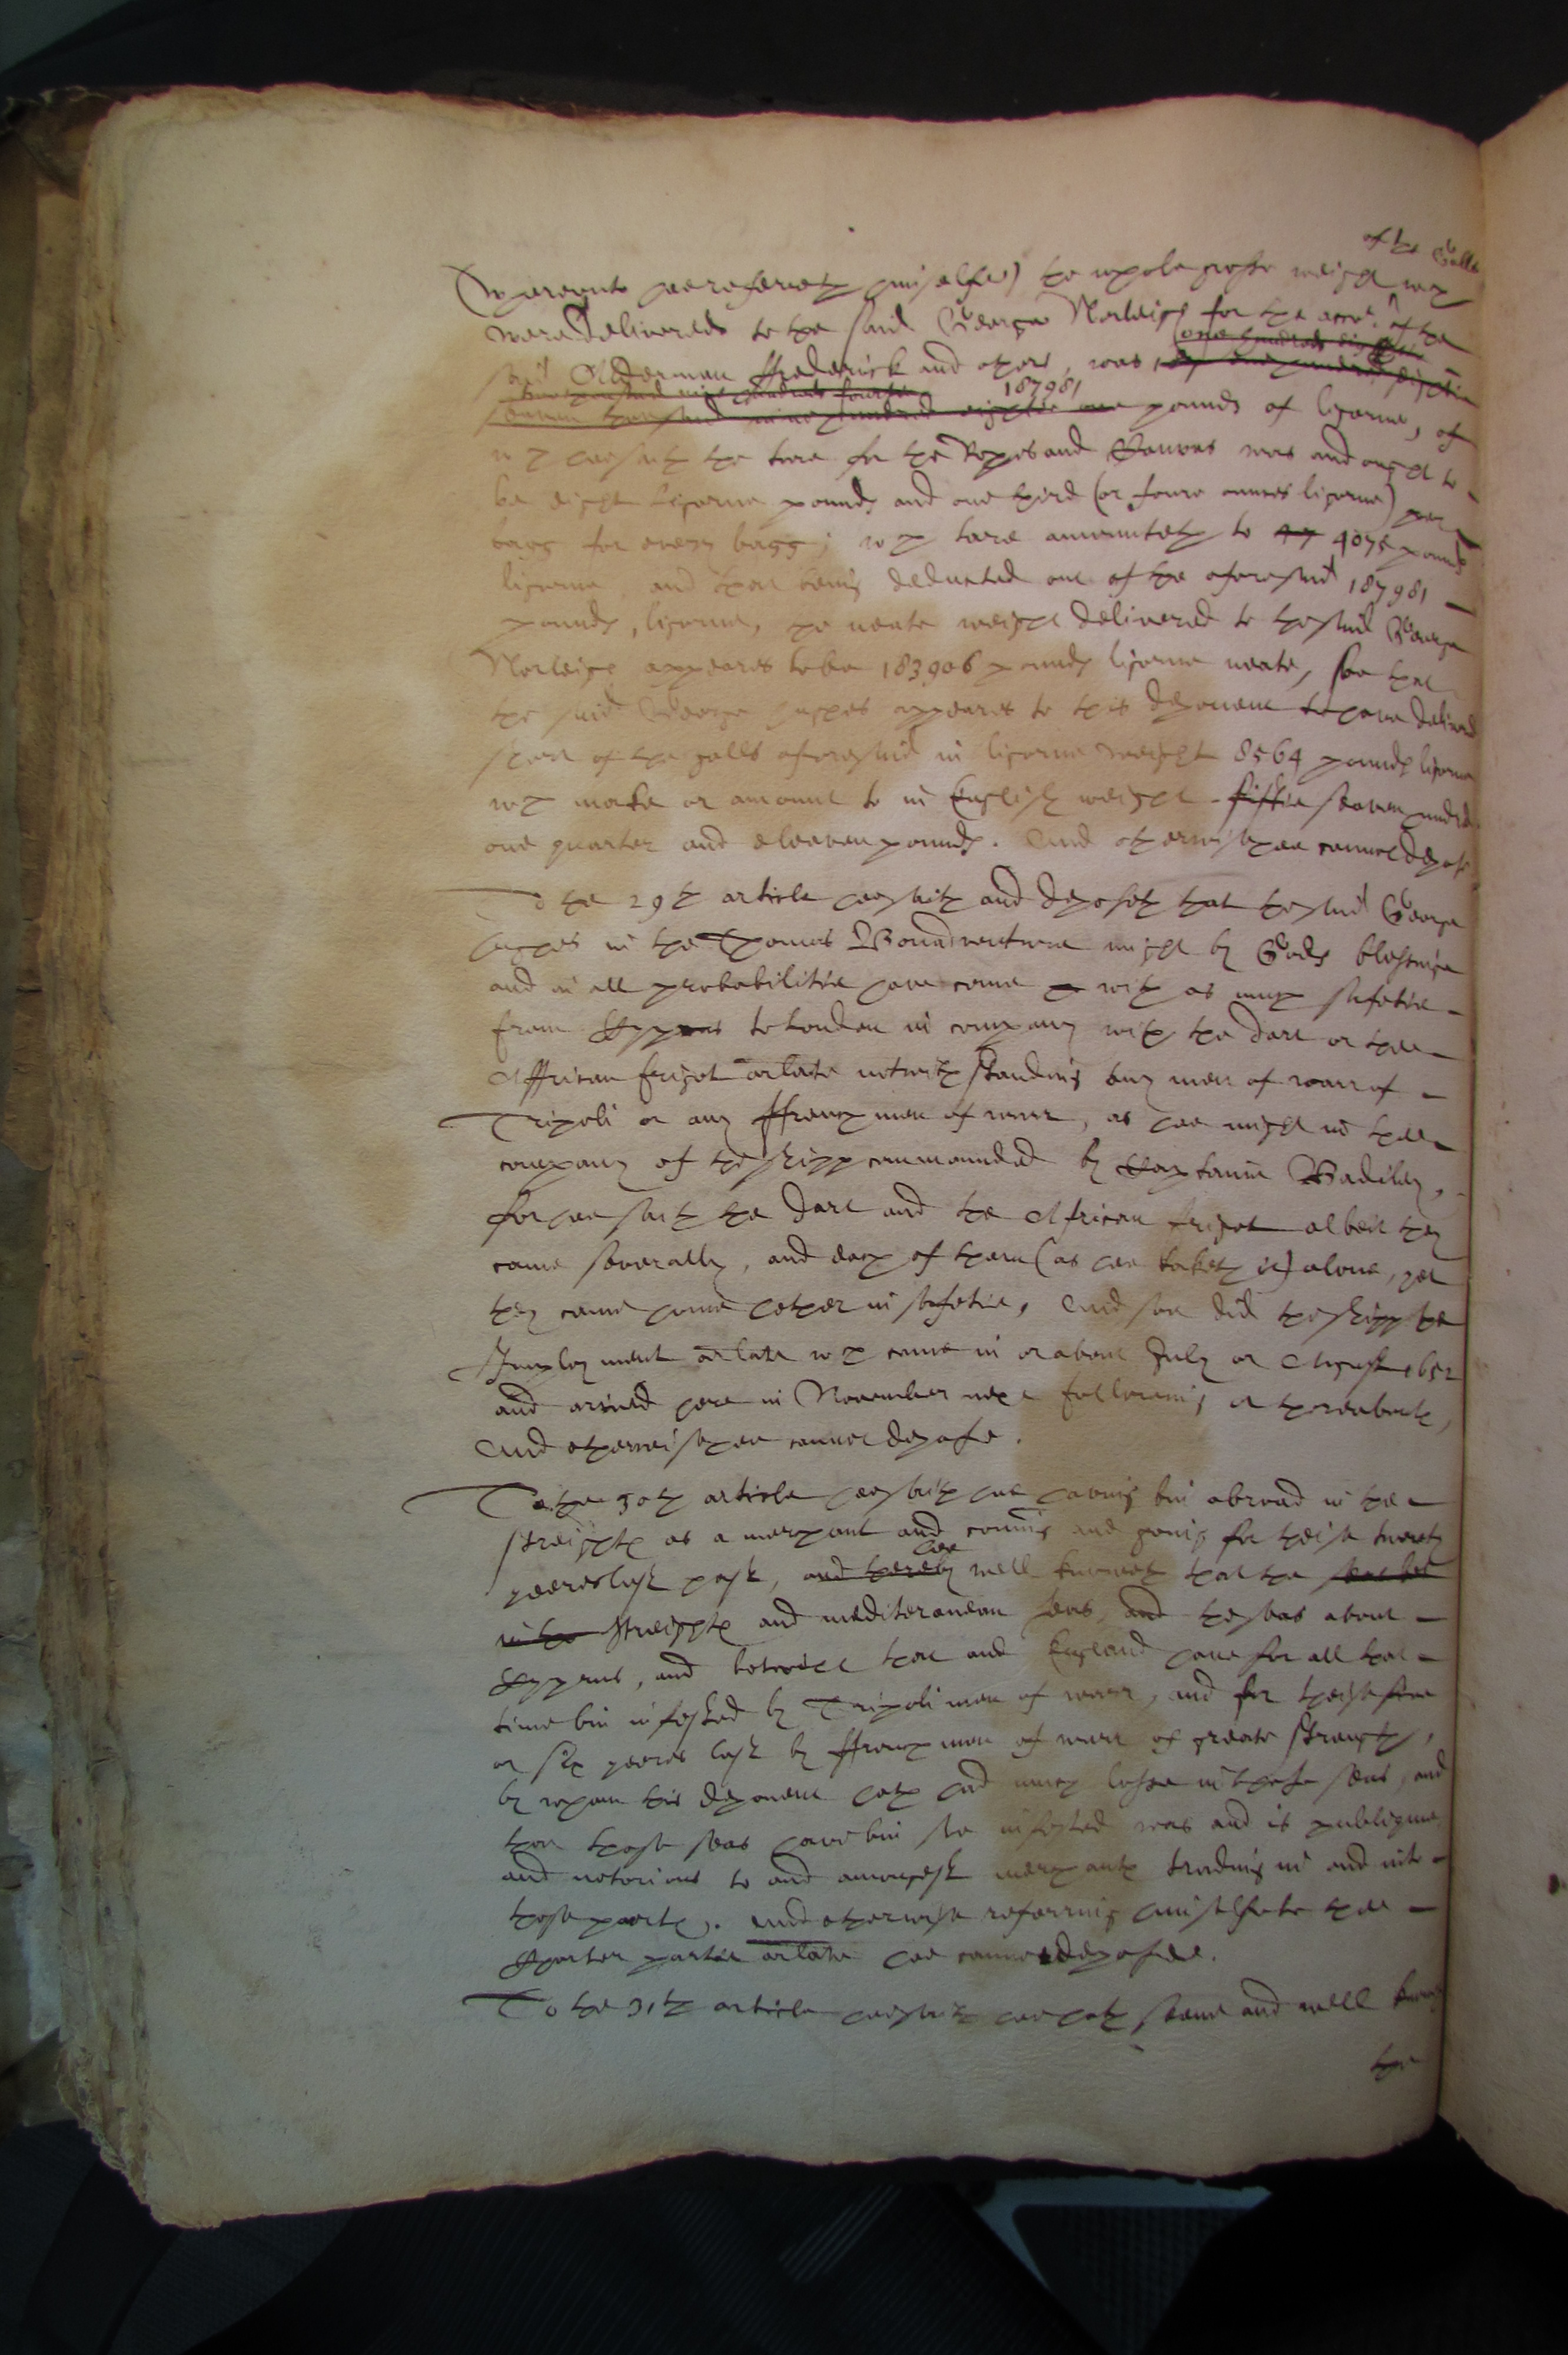 of the Galls
(whereunto hee referreth himselfe) the whole grosse weight wch
were delivered to the said George Norleigh for the accot. of the
said Alderman ffrederick and others, was one hundred eightie
seaven thousand nine hundred eightie one 187981 pounds of ligorne, of
wch hee saith the tare for the Ropes and Canvas was and ought to
be eight ligorne pounds and one third (or foure ounces ligorne) per
bagg for every bagg; wch tare amounteth to 4075 pounds
ligorne and that being deducted out of the aforesaid 187981
pounds, ligorne, the neate weight delivered to the said George
Norleigh appeares to be 183906 pounds ligorne neate, soe that
the said George Hughes appeares to this deponent to have delivered
short of the galls aforesaid in ligorne weight 8564 pounds ligorne
wch make or amount to in English weight fiftie seaven hundred
one quarter and eleaven pounds. And otherwise hee cannot depose
To the 29th article hee saith and deposeth that the said George
Hughes in the Thomas Bonadventure might by Gods blessinge
and in all probabilitie have come with as much safetie
from Cyprus to London in company with the Dart or the
Affrican frigot arlate notwithstanding any men of warr of
Tripoli or any ffrench men of warr, as hee might in the
company of the shipp commaunded by Captaine Badiley,
for hee saith the Dart and the African frigot albeit they
came severally, and each of them (as hee taketh it) alone, yet
they came home hether in safetie, And soe did the shipp the
Imployment arlate wch came in or about July or August 1652
and arived here in November next following or thereabouts,
And otherwise hee cannot depose.
To the 30th article hee saith hee having bin abroad in the
streights as a merchant and coming and going for theise twenty
yeeres last past, and thereby hee well knoweth that the seas bet
in the streights and mediteranean seas, and the seas about
Cyprus, and betwixt that and England have for all that
time bin infested by Tripoli men of warr, and for theise five
or six yeeres last by ffrench men of warr of greate strength,
by whom this deponent hath had much losse in those seas, and
that those seas have bin soe infested was and is publique
and notorious to and amongest merchants trading in and into
those parts. And otherwise referring himselfe to the
Charter partie arlate hee cannot depose.
To the 31th article hee saith hee hath seene and well knowes
the